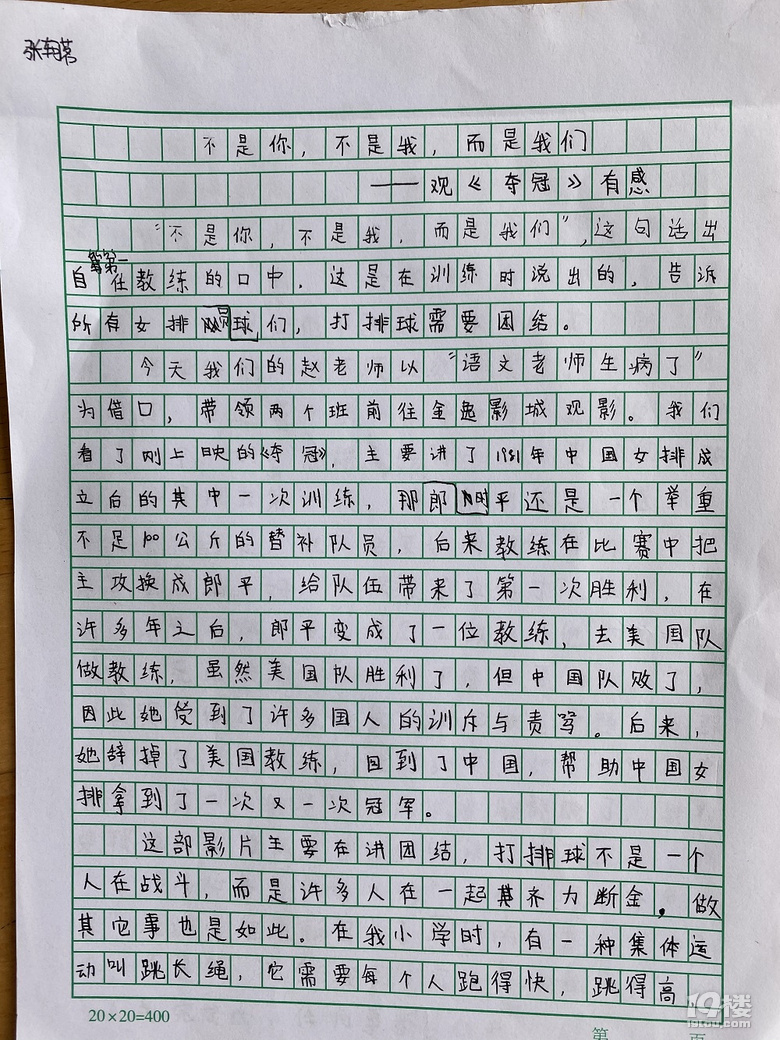 不是你，不是我，而是我们
——观《夺冠》有感
“不是你，不是我，而是我们”，这句话出
自第一任教练的口中。这是在训练时说出的，告诉
所有女排球员们，打排球需要团结。
今天我们的赵老师以“语文老师生病了”
为借口，带领两个班前往金逸影城观影。我们
看了刚上映的《夺冠》，主要讲了1981年中国女排成
立后的其中一次训练，那时郎平还是一个举重
不足100公斤的替补队员，后来教练在比赛中把
主攻换成郎平，给队伍带来了第一次胜利，在
许多年之后，郎平变成了一位教练，去美国队
做教练，虽然美国队胜利了，但中国队败了，
因此她受到了许多国人的训斥与责骂。后来，
她辞掉了美国教练，回到了中国，帮助中国女
排拿到了一次又一次冠军。
这部影片主要在讲团结，打排球不是一个
人在战斗，而是许多人在一起其齐力断金。做
其它事也是如此。在我小学时，有一种集体运
动叫跳长绳，它需要每个人跑得快，跳得高
20×20=400
第 页
19楼
19lou.com